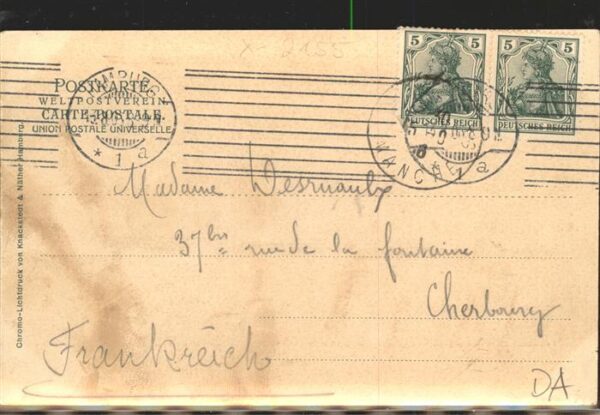 x-2155
5 5
POSTKARTE.
WELTPOSTVEREIN.
CARTE POSTALE.
UNION POSTALE UNIVERSELLE.
* 1 a
DEUTSCHES REICH
DEUTSCHES REICH
MANCHE
* 1 a
Madame
37 bis rue de la fontaine
Cherbourg
Frankreich
DA
Chromo-Lichtdruck von Knackstedt & Näther Hamburg.